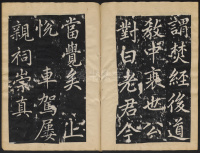 謂焚經後道
教中衰世公
對白老君今
當覺矣 上
悅 車駕屢
親祠崇真